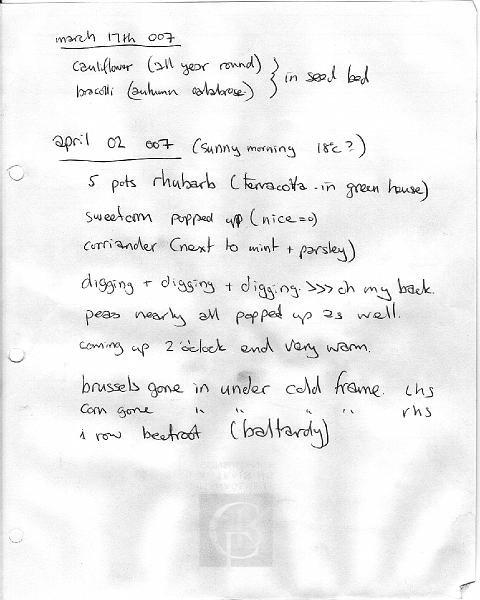 march 17th 007
cauliflower (all year round) } in seed bed
brocolli (autumn calabrese)
april 02 007 (sunny morning 18°c?)
5 pots rhubarb (terracotta - in green house)
sweetcorn popped up (nice =o)
corriander (next to mint + parsley)
digging + digging + digging. >>> oh my back.
peas nearly all popped up as well.
coming up 2 o'clock and very warm.
brussels gone in under cold frame. lhs
corn gone " " " " rhs
1 row beetroot (boltardy)